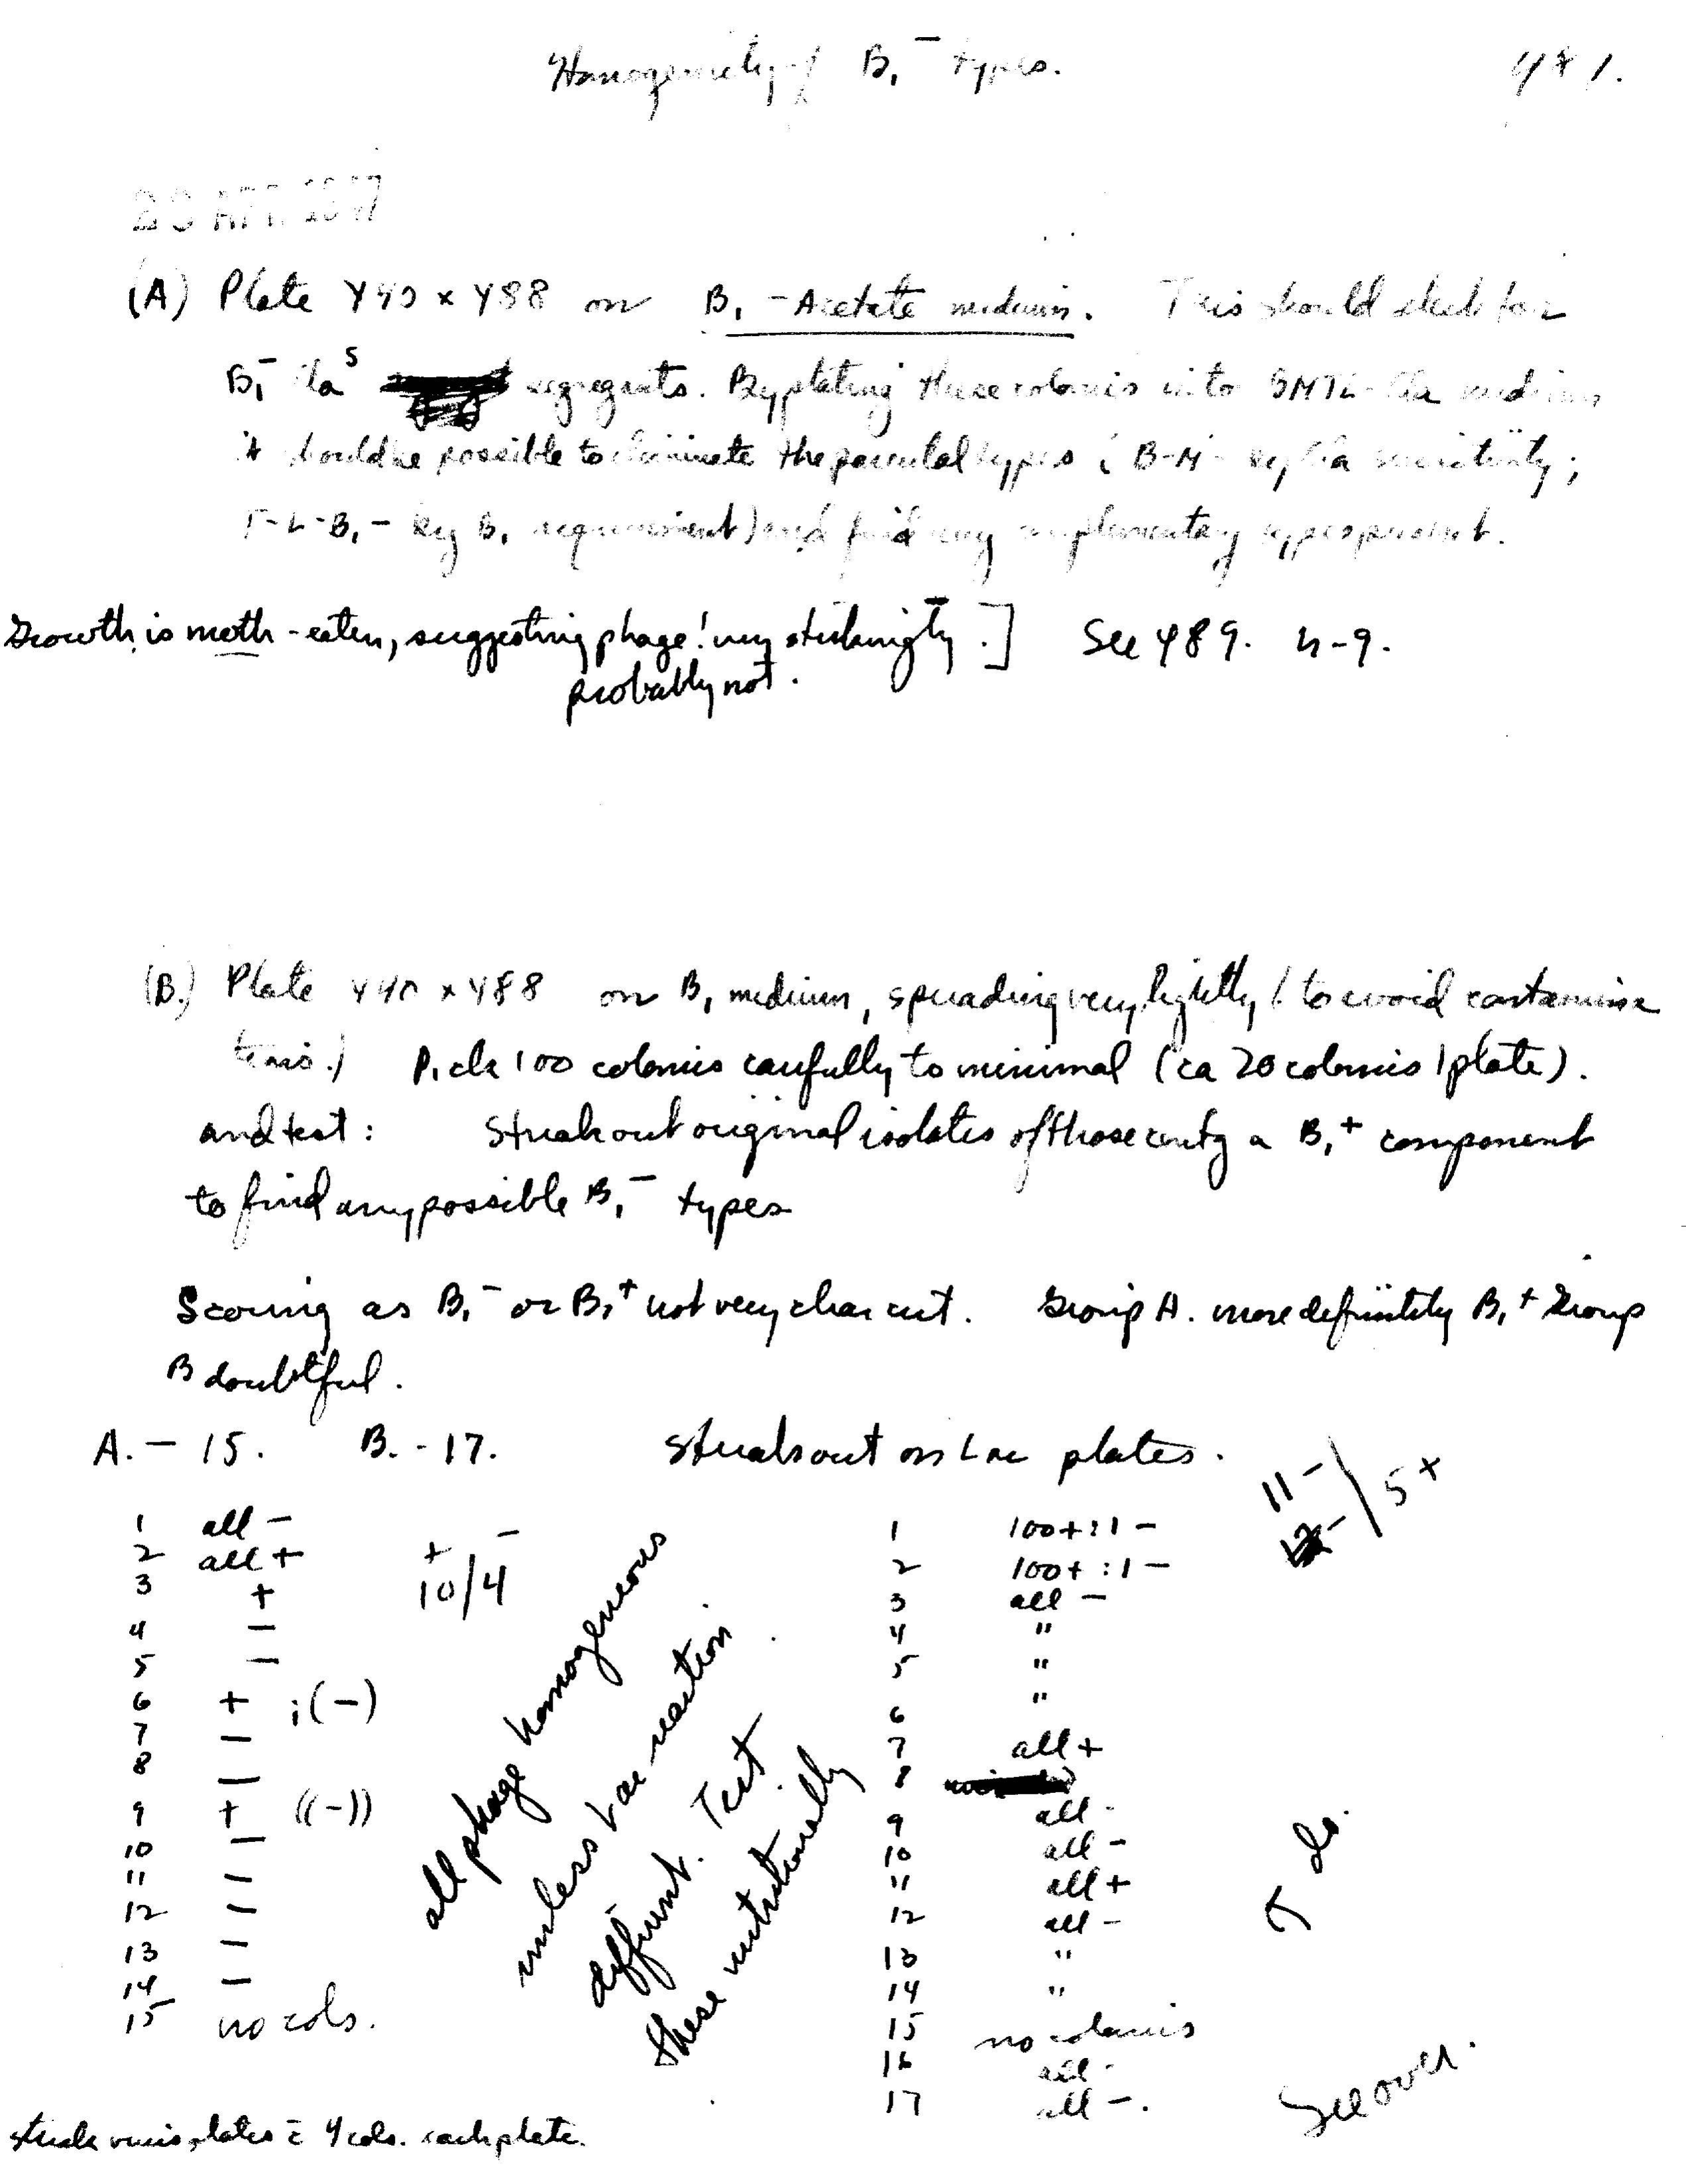 Homogeneity of B₁⁻ types. 481.
(A) Plate Y40 x Y88 on B₁ - Acetate medium. This should select for
B₁⁻ la^s segregants. By plating these colonies into BMTL- medium
it should be possible to eliminate the parental types ( B-M- by la sensitivity;
T-L-B₁- by B₁ requirement) and find any complementary types present.
Growth is moth-eaten, suggesting phage! very strikingly.] See 489. 4-9.
probably not.
(B.) Plate Y40 x Y88 on B₁ medium, spreading very lightly (to avoid contamina
tions.) Pick 100 colonies carefully to minimal (ca 20 colonies / plate).
and test: Streak out original isolates of those contg a B₁⁺ component
to find any possible B₁⁻ types
Scoring as B₁⁻ or B₁⁺ not very clear cut. Group A. more definitely B₁⁺ Group
B doubtful.
A. - 15. B. - 17. Streak out on Lac plates.
11- / 5+
1 all -
2 all +
3 +
4 -
5 -
6 + ; (-)
7 -
8 -
9 + ((-))
10 -
11 -
12 -
13 -
14 -
15 no cols.
+ -
10/4
all phage homogeneous
unless Lac reaction
different. Test
these nutritionally
1 100+ : 1 -
2 100+ : 1 -
3 all -
4 "
5 "
6 "
7 all +
8
9 all -
10 all -
11 all +
12 all -
13 "
14 "
15 no colonies
16 all -
17 all -.
do.
See over.
Streak various plates c̄ 4 cols. each plate.